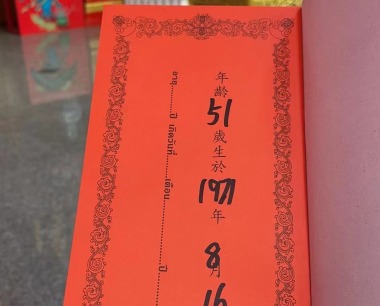 年齡51歲生於1971年8月16
อายุ..........ปี เกิดวันที่..........เดือน....................ปี